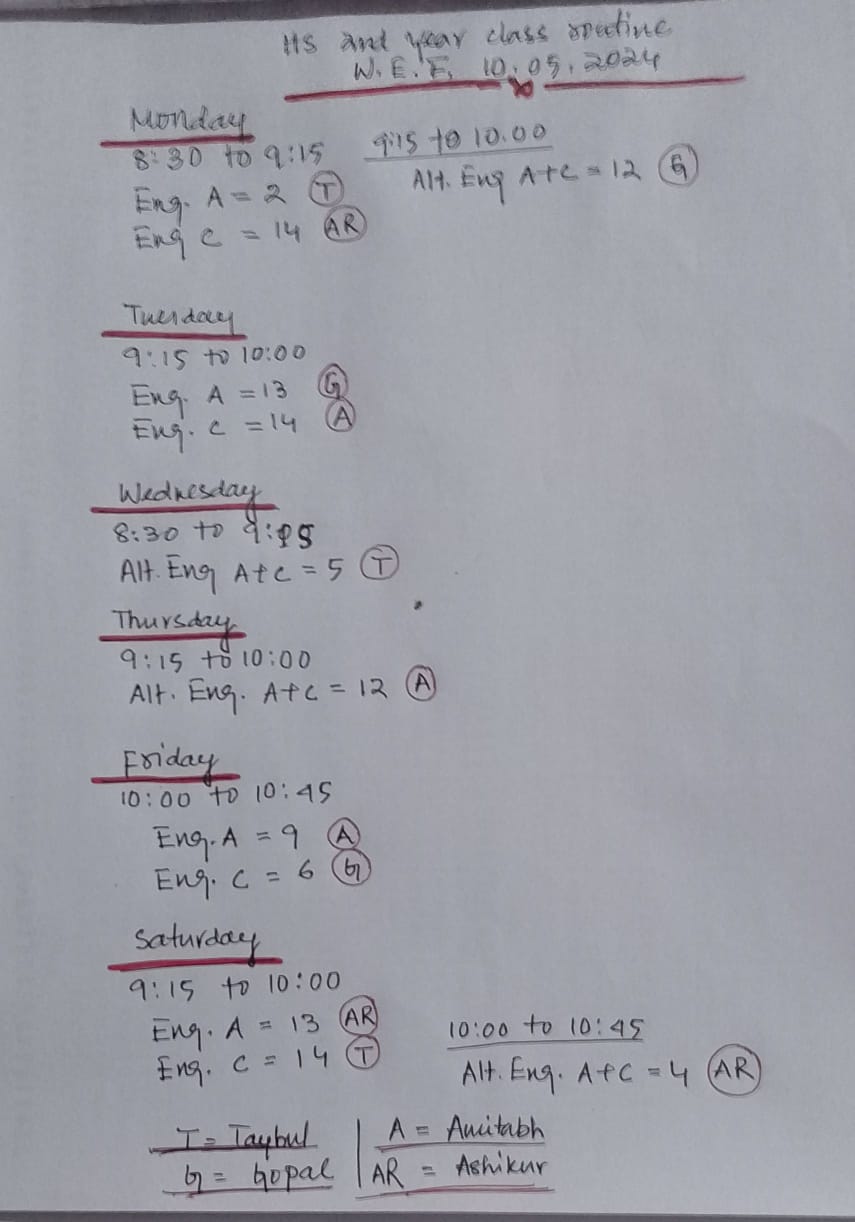 HS 2nd year class routine
W.E.F. 10.05.2024
Monday
8:30 to 9:15
Eng. A = 2 (T)
Eng C = 14 (AR)
9:15 to 10.00
Alt. Eng A+C = 12 (G)
Tuesday
9:15 to 10:00
Eng. A = 13 (G)
Eng. C = 14 (A)
Wednesday
8:30 to 9:15
Alt. Eng A+C = 5 (T)
Thursday
9:15 to 10:00
Alt. Eng. A+C = 12 (A)
Friday
10:00 to 10:45
Eng. A = 9 (A)
Eng. C = 6 (G)
Saturday
9:15 to 10:00
Eng. A = 13 (AR)
Eng. C = 14 (T)
10:00 to 10:45
Alt. Eng. A+C = 4 (AR)
T = Taybul
G = Gopal
A = Amitabh
AR = Ashikur